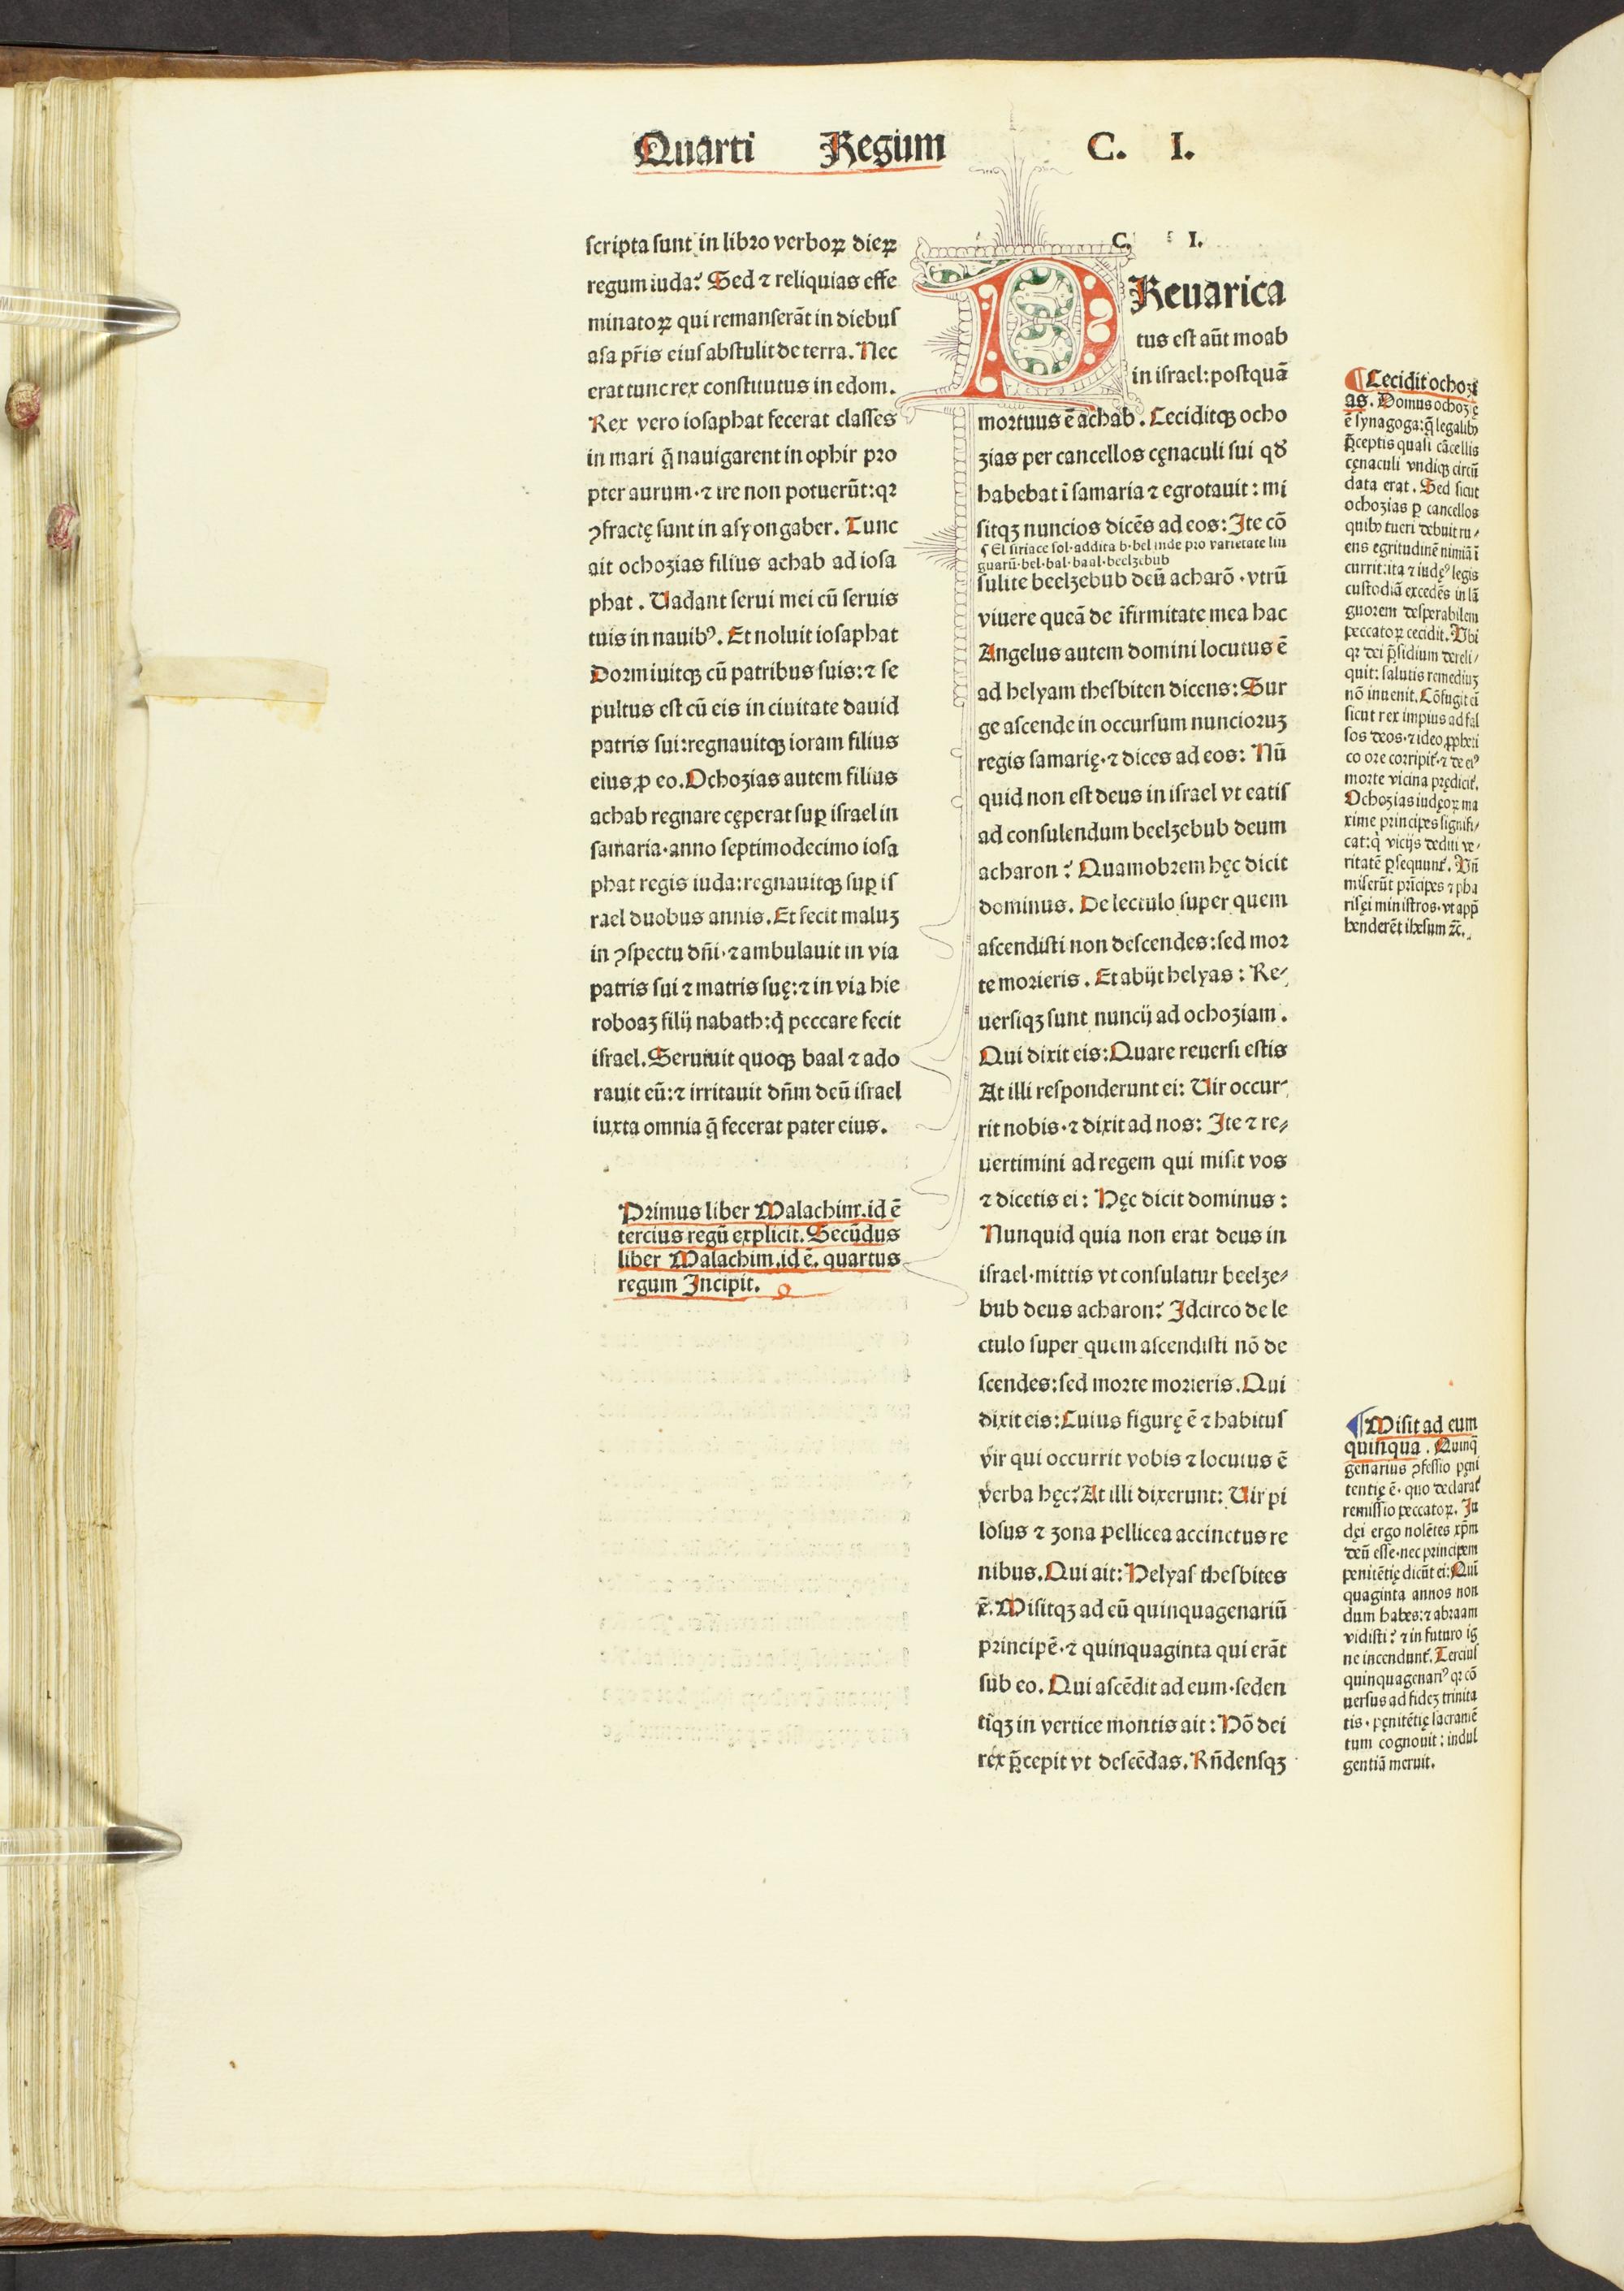 Quarti Regum C. I.
ſcripta ſunt in libro verboꝝ dieꝝ
regum iuda? Sed ⁊ reliquias effe
minatoꝝ qui remanſerāt in diebuſ
aſa pr̄is eiuſ abſtulit de terra. Nec
erat tunc rex conſtitutus in edom.
Rex vero ioſaphat fecerat claſſes
in mari q̄ nauigarent in ophir pro
pter aurum·⁊ ire non potuerūt:qꝛ
ↄfractę ſunt in aſyongaber. Tunc
ait ochozias filius achab ad ioſa
phat. Vadant ſerui mei cū ſeruis
tuis in nauibꝰ. Et noluit ioſaphat
Dormiuitqꝫ cū patribus ſuis:⁊ ſe
pultus eſt cū eis in ciuitate dauid
patris ſui:regnauitqꝫ ioram filius
eius ꝓ eo. Ochozias autem filius
achab regnare cęperat ſuꝑ iſrael in
ſamaria·anno ſeptimodecimo ioſa
phat regis iuda:regnauitqꝫ ſuꝑ iſ
rael duobus annis. Et fecit maluꝫ
in ↄſpectu dn̄i·⁊ ambulauit in via
patris ſui ⁊ matris ſuę:⁊ in via hie
roboaꝫ filij nabath:q̇ peccare fecit
iſrael. Seruiuit quoqꝫ baal ⁊ ado
rauit eū:⁊ irritauit dn̄m deū iſrael
iuxta omnia q̄ fecerat pater eius.
Primus liber Malachim.id ē
tercius regū explicit. Secūdus
liber Malachim.id ē. quartus
regum Incipit.
C. I.
PReuarica
tus eſt aūt moab
in iſrael:poſtquā
mortuus ē achab. Ceciditqꝫ ocho
zias per cancellos cęnaculi ſui qđ
habebat ī ſamaria ⁊ egrotauit: mi
ſitqꝫ nuncios dicēs ad eos: Ite cō
¶ El ſiriace ſol·addita b·bel inde pro varietate lin
guarū·bel·bal·baal·beelzebub
ſulite beelzebub deū acharō·vtrū
viuere queā de īfirmitate mea hac
Angelus autem domini locutus ē
ad helyam theſbiten dicens: Sur
ge aſcende in occurſum nuncioruꝫ
regis ſamarię·⁊ dices ad eos: Nū
quid non eſt deus in iſrael vt eatiſ
ad conſulendum beelzebub deum
acharon? Quamobrem hęc dicit
dominus. De lectulo ſuper quem
aſcendiſti non deſcendes:ſed mor
te morieris. Et abijt helyas: Re⸗
uerſiqꝫ ſunt nuncij ad ochoziam.
Qui dixit eis: Quare reuerſi eſtis
At illi reſponderunt ei: Vir occur⸗
rit nobis·⁊ dixit ad nos: Ite ⁊ re⸗
uertimini ad regem qui miſit vos
⁊ dicetis ei: Hęc dicit dominus:
Nunquid quia non erat deus in
iſrael·mittis vt conſulatur beelze⸗
bub deus acharon? Idcirco de le
ctulo ſuper quem aſcendiſti nō de
ſcendes:ſed morte morieris. Qui
dixit eis: Cuius figurę ē ⁊ habituſ
vir qui occurrit vobis ⁊ locutus ē
verba hęc? At illi dixerunt: Vir pi
loſus ⁊ zona pellicea accinctus re
nibus. Qui ait: Helyaſ theſbites
ē. Miſitqꝫ ad eū quinquagenariū
principē·⁊ quinquaginta qui erāt
ſub eo. Qui aſcēdit ad eum·ſeden
tiqꝫ in vertice montis ait: Hō dei
rex p̄cepit vt deſcēdas. Rn̄denſqꝫ
¶ Cecidit ochozi
as. Domus ochozię
ē ſynagoga:q̄ legalibꝰ
p̄ceptis quaſi cācellis
cęnaculi vndiqꝫ circū
data erat. Sed ſicut
ochozias ꝑ cancellos
quibꝰ tueri debuit ru⸗
ens egritudinē nimiā ī
currit:ita ⁊ iudęꝰ legis
cuſtodiā excedēs in lā
guorem deſperabilem
peccatoꝝ cecidit. Vbi
qꝛ dei p̄ſidium dereli⸗
quit: ſalutis remediuꝫ
nō inuenit. Cōfugit em̄
ſicut rex impius ad fal
ſos deos·⁊ ideo ꝓpheti
co ore corripit᷑·⁊ de eiꝰ
morte vicina prędicit᷑.
Ochozias iudęoꝝ ma
xime principes ſignifi⸗
cat:q̇ vicijs dediti ve⸗
ritatē ꝑſequunt᷑. Vn̄
miſerūt prīcipes ⁊ pha
riſęi miniſtros·vt app̄
henderēt iheſum ⁊c̄.
¶ Miſit ad eum
quinqua. Quinq̄
genarius ↄfeſſio pęni
tentię ē·quo declarat᷑
remiſſio peccatoꝝ. Iu
dęi ergo nolētes xp̄m
deū eſſe·nec principem
penitētię dicūt ei: Quī
quaginta annos non
dum habes:⁊ abraam
vidiſti? ⁊ in futuro ig
ne incendunt᷑. Terciuſ
quinquagenariꝰ qꝛ cō
uerſus ad fideꝫ trinita
tis·pęnitētię ſacramē
tum cognouit: indul
gentiā meruit.